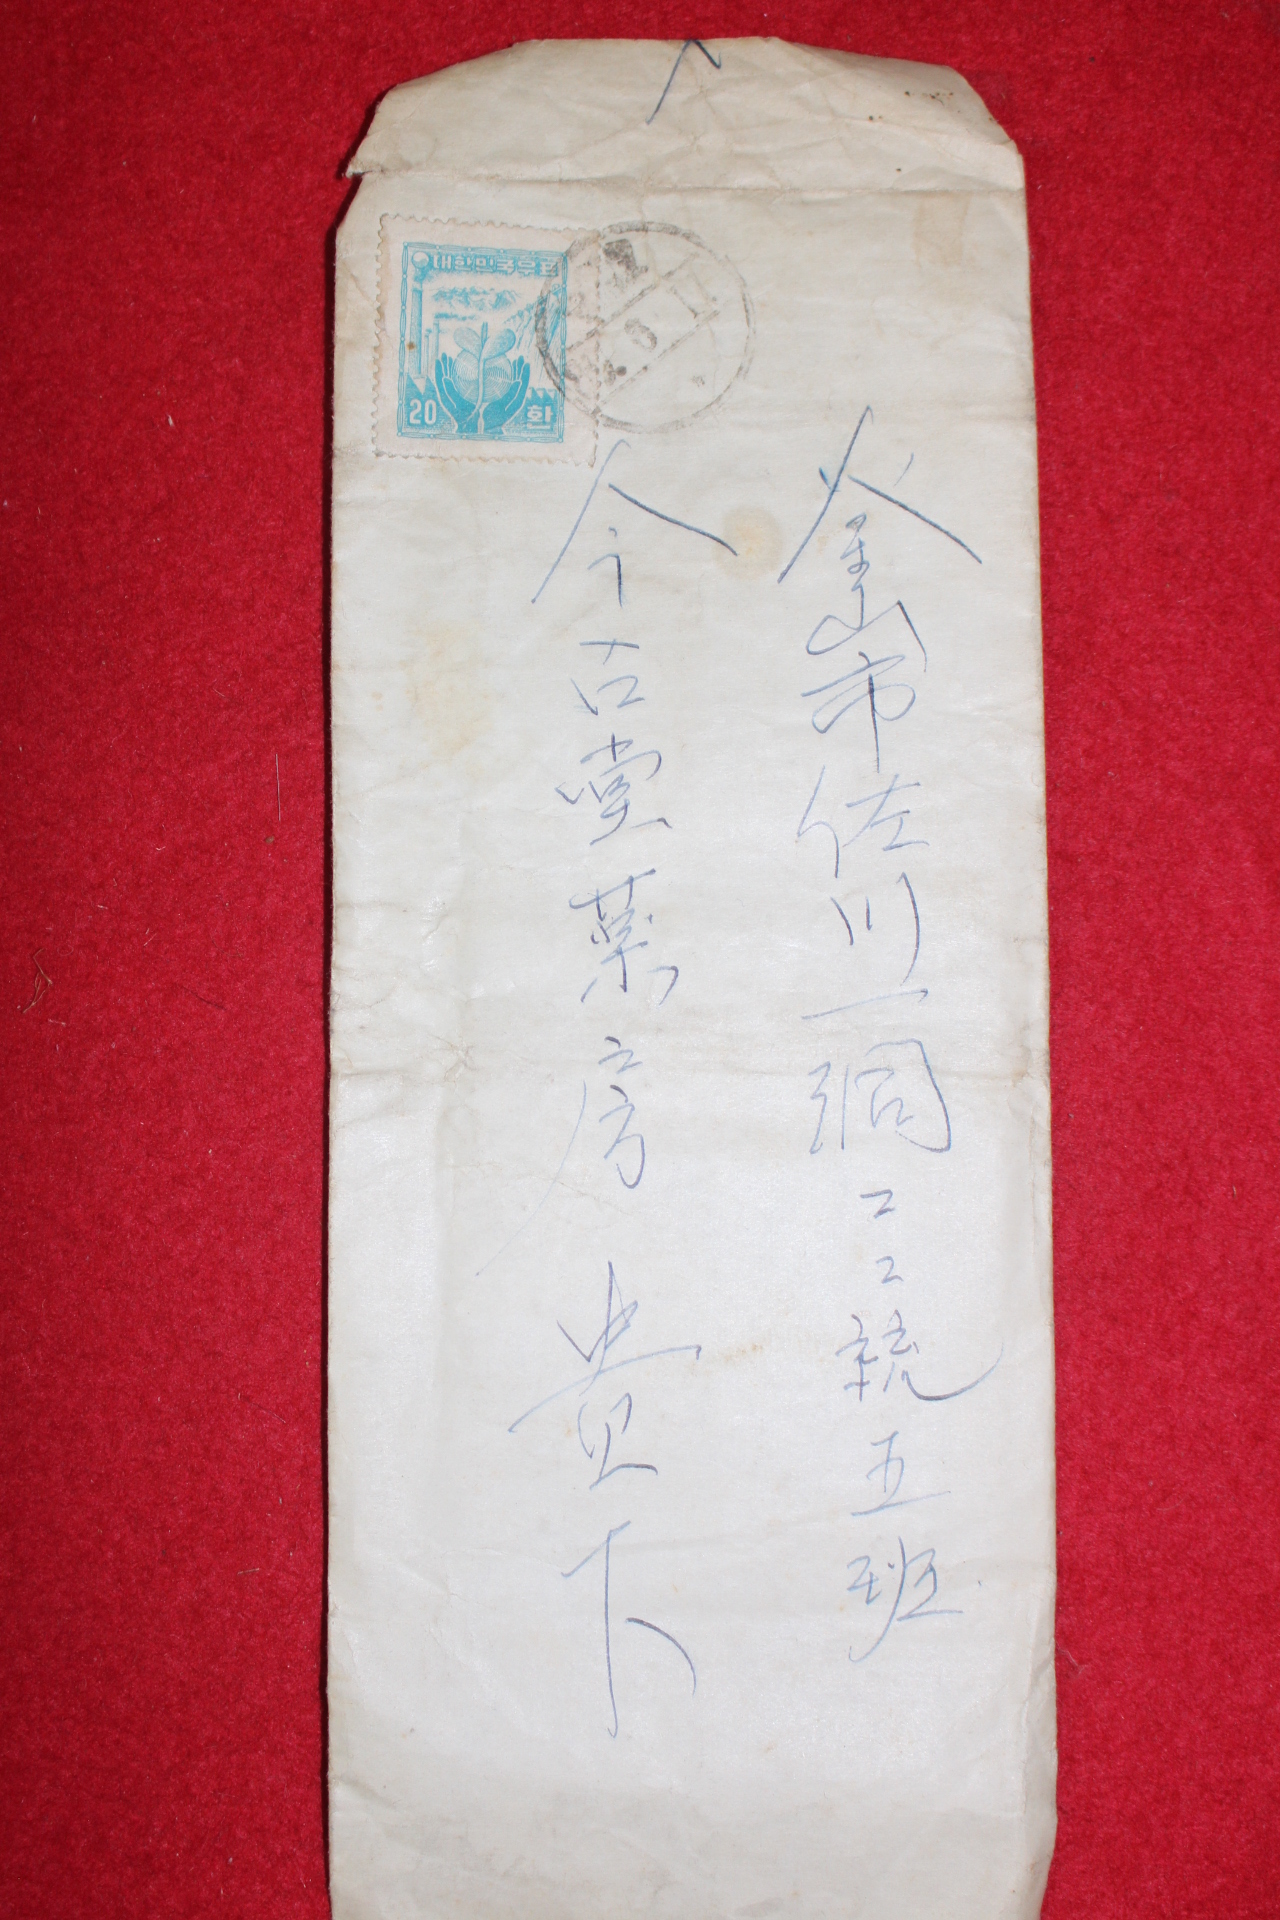 대한민국우표
20 환
釜山市佐川一洞二二統五班
今古堂薬房 貴下